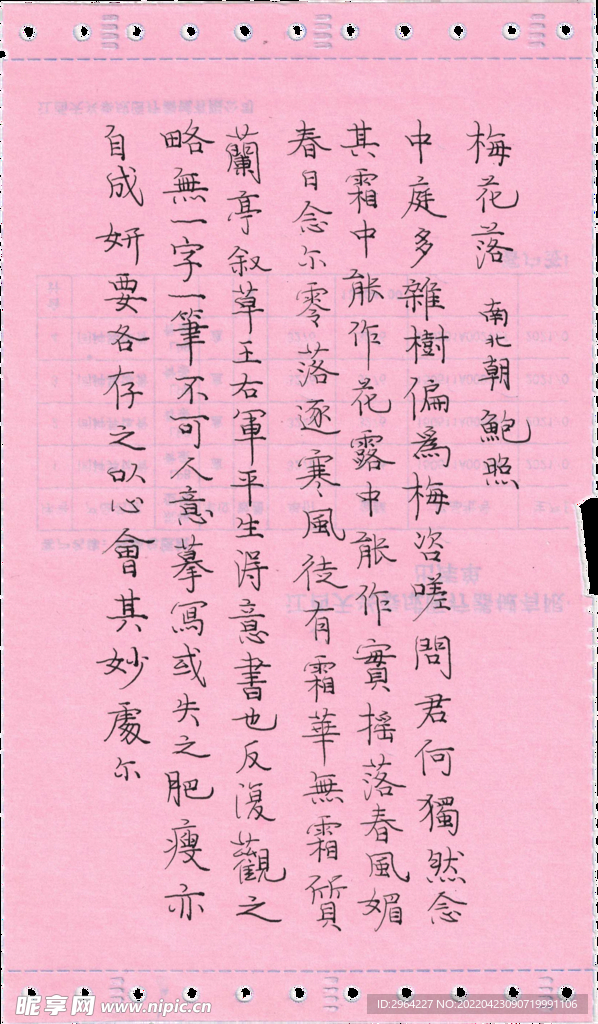 梅花落 南北朝 鮑照
中庭多雜樹偏爲梅咨嗟問君何獨然念
其霜中能作花露中能作實摇落春風媚
春日念尔零落逐寒風徒有霜華無霜質
蘭亭叙草王右軍平生得意書也反復觀之
略無一字一筆不可人意摹寫或失之肥瘦亦
自成妍要各存之以心會其妙處尔
昵享网 www.nipic.cn
ID:2964227 NO:20220423090719991106